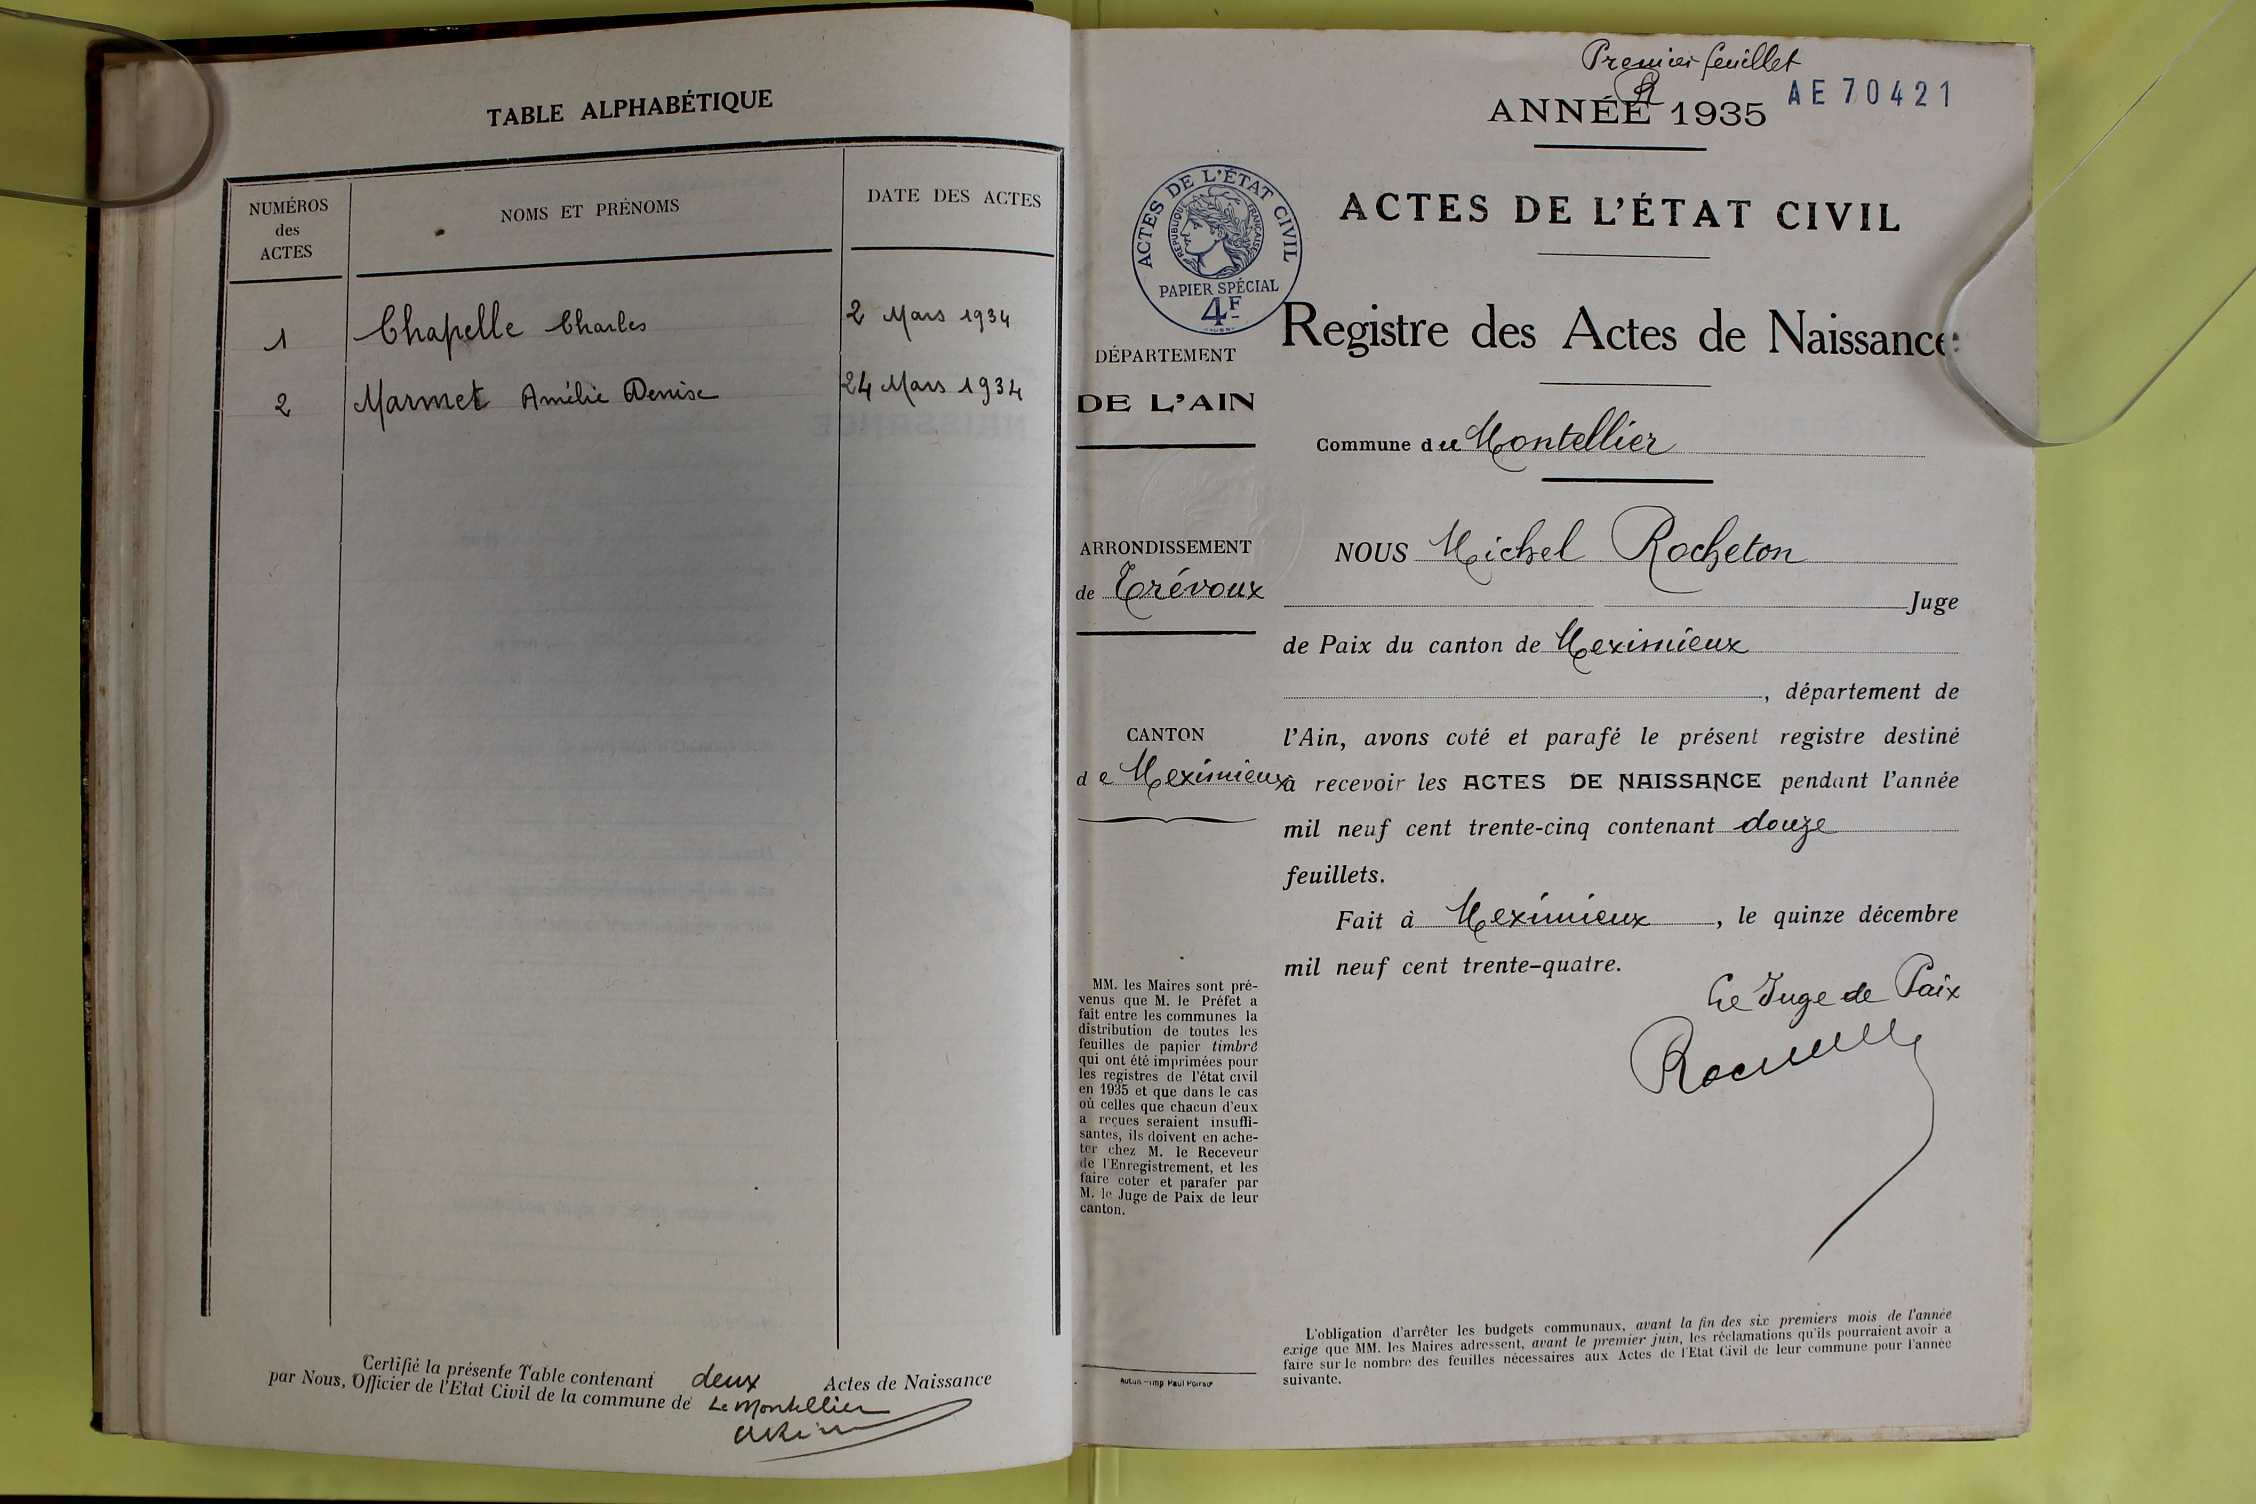 TABLE ALPHABÉTIQUE
NUMÉROS
des
ACTES
NOMS ET PRÉNOMS
DATE DES ACTES
1 Chapelle Charles 2 Mars 1934
2 Marmet Amélie Denise 24 Mars 1934
Certifié la présente Table contenant deux Actes de Naissance
par Nous, Officier de l'Etat Civil de la commune de Le Montellier
Premier feuillet
AE 70421
ANNÉE 1935
ACTES DE L'ÉTAT CIVIL
ACTES DE L'ÉTAT CIVIL
RÉPUBLIQUE FRANÇAISE
PAPIER SPÉCIAL
4F
Registre des Actes de Naissance
DÉPARTEMENT
DE L'AIN
Commune du Montellier
ARRONDISSEMENT
de Trévoux
CANTON
de Meximieux
MM. les Maires sont pré-
venus que M. le Préfet a
fait entre les communes la
distribution de toutes les
feuilles de papier timbré
qui ont été imprimées pour
les registres de l'état civil
en 1935 et que dans le cas
où celles que chacun d'eux
a reçues seraient insuffi-
santes, ils doivent en ache-
ter chez M. le Receveur
de l'Enregistrement, et les
faire coter et parafer par
M. le Juge de Paix de leur
canton.
Autun - Imp Paul Poirson
NOUS Michel Rocheton
Juge
de Paix du canton de Meximieux
, département de
l'Ain, avons coté et parafé le présent registre destiné
à recevoir les ACTES DE NAISSANCE pendant l'année
mil neuf cent trente-cinq contenant douze
feuillets.
Fait à Meximieux, le quinze décembre
mil neuf cent trente-quatre.
Le Juge de Paix
L'obligation d'arrêter les budgets communaux, avant la fin des six premiers mois de l'année
exige que MM. les Maires adressent, avant le premier juin, les réclamations qu'ils pourraient avoir a
faire sur le nombre des feuilles nécessaires aux Actes de l'Etat Civil de leur commune pour l'année
suivante.